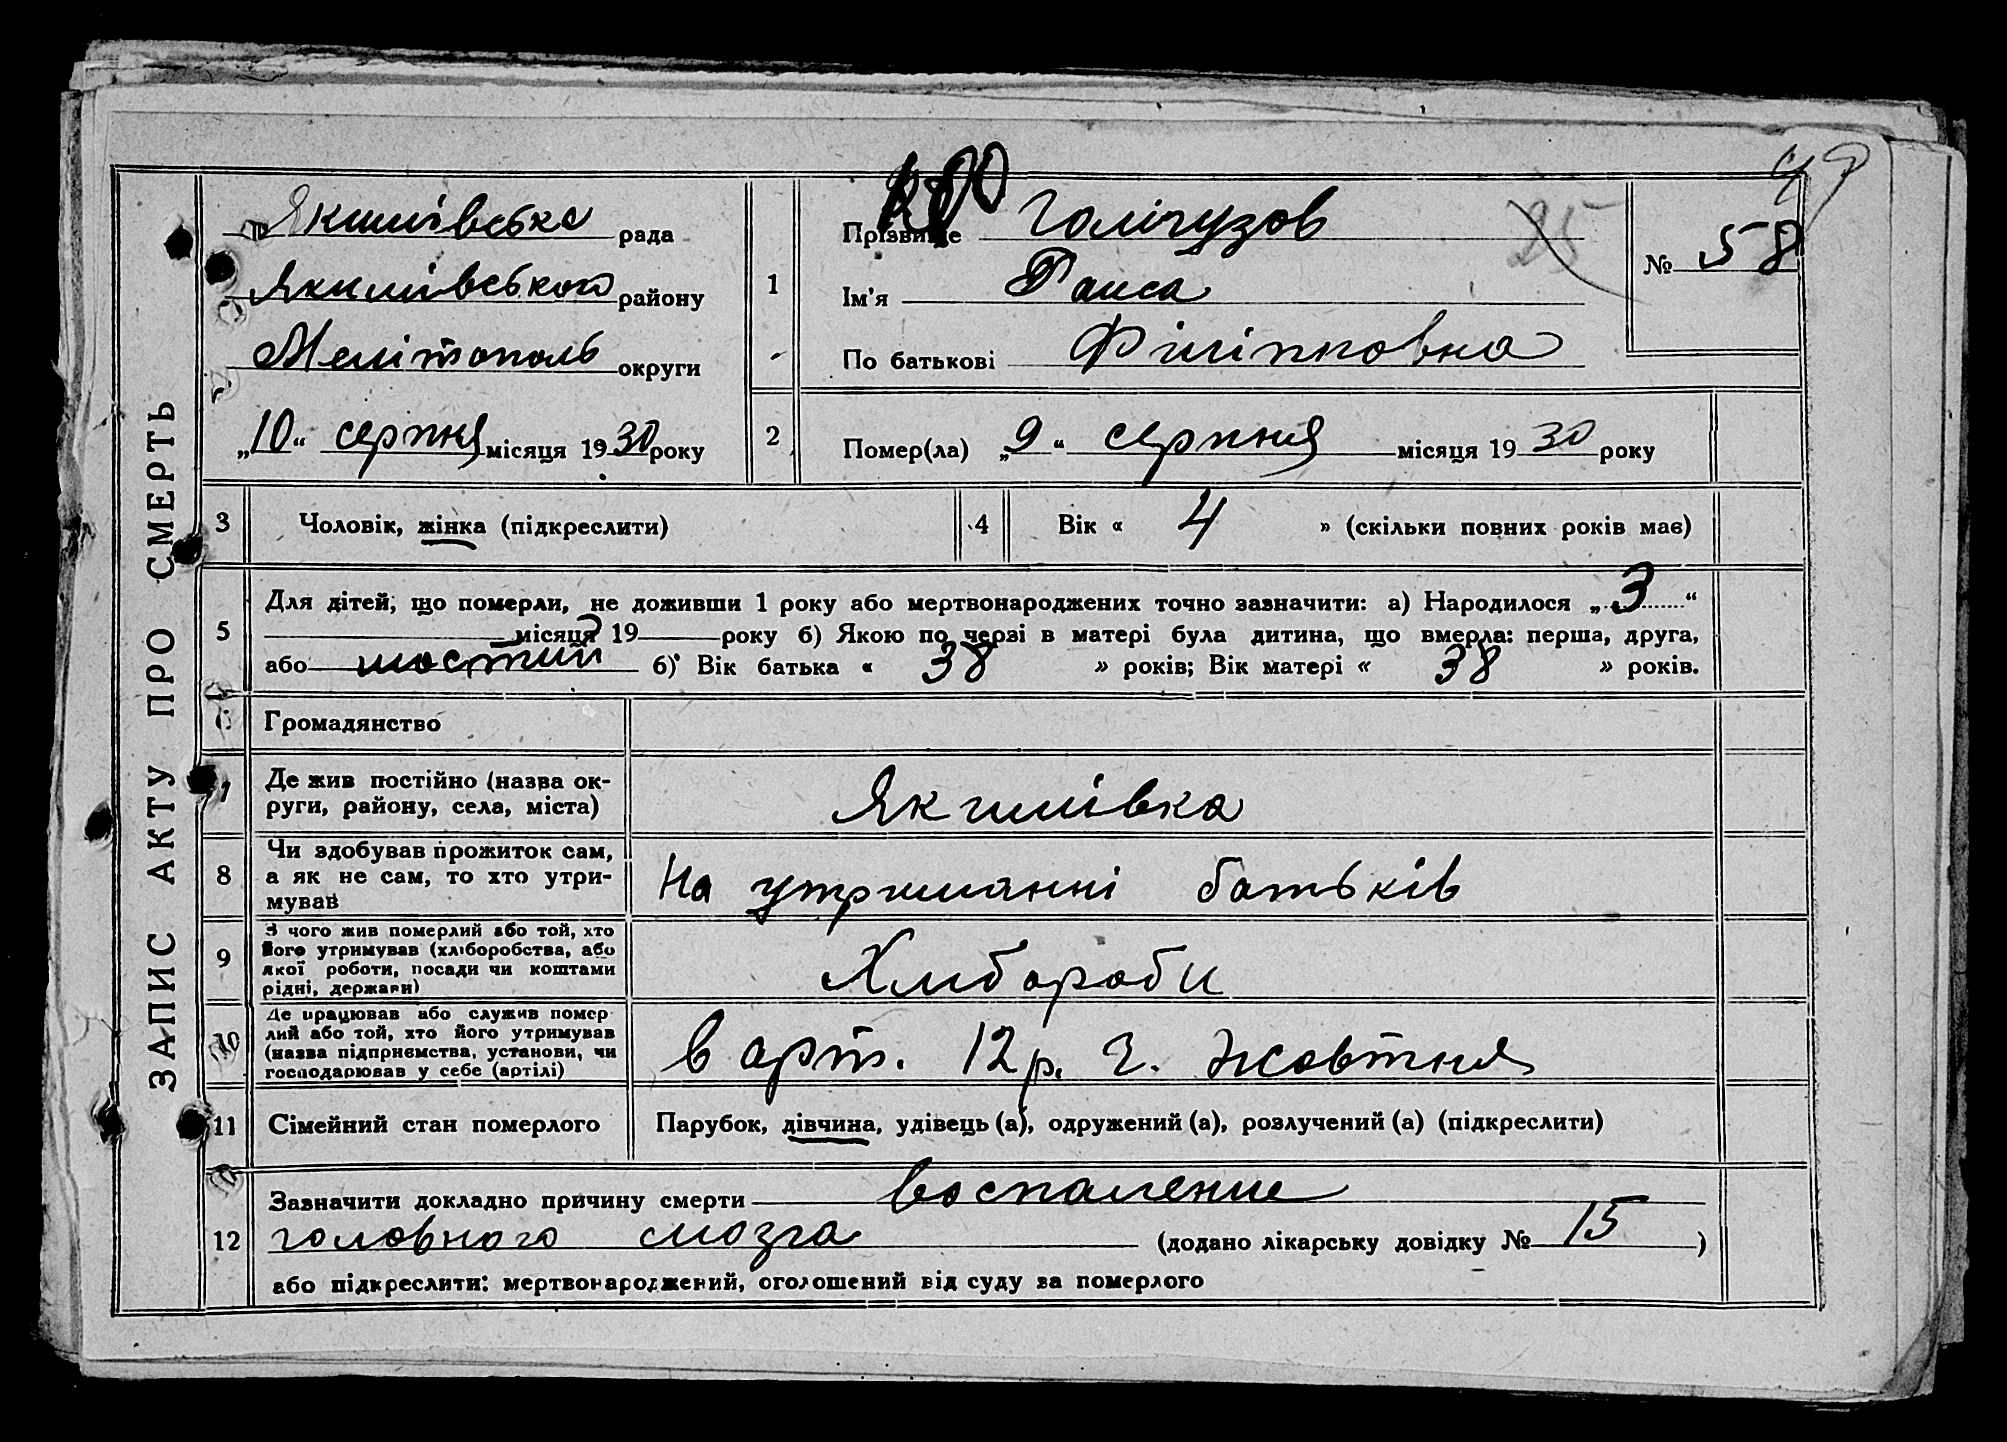 ЗАПИС АКТУ ПРО СМЕРТЬ
Якимівська рада
Якимівського району
Мелітополь округи
„10“ серпня місяця 1930 року
1
Прізвище Голігузов
Ім'я Раиса
По батькові Філіпповна
25
№ 58
2
Помер(ла) „9“ серпня місяця 1930 року
3 Чоловік, жінка (підкреслити)
4 Вік « 4 » (скільки повних років має)
5
Для дітей, що померли, не доживши 1 року або мертвонароджених точно зазначити: а) Народилося „3“
місяця 19 року б) Якою по черзі в матері була дитина, що вмерла: перша, друга,
або шостий б) Вік батька « 38 » років; Вік матері « 38 » років.
6 Громадянство
7
Де жив постійно (назва ок-
руги, району, села, міста)
Якимівка
8
Чи здобував прожиток сам,
а як не сам, то хто утри-
мував
На утриманні батьків
9
З чого жив померлий або той, хто
його утримував (хліборобства, або
якої роботи, посади чи коштами
рідні, держави)
Хлибороби
10
Де працював або служив помер
лий або той, хто його утримував
(назва підприємства, установи, чи
господарював у себе (артілі)
в арт. 12 р. Ч. Жовтня
11 Сімейний стан померлого
Парубок, дівчина, удівець (а), одружений (а), розлучений (а) (підкреслити)
12
Зазначити докладно причину смерти воспаление
головного мозга (додано лікарську довідку № 15)
або підкреслити: мертвонароджений, оголошений від суду за померлого